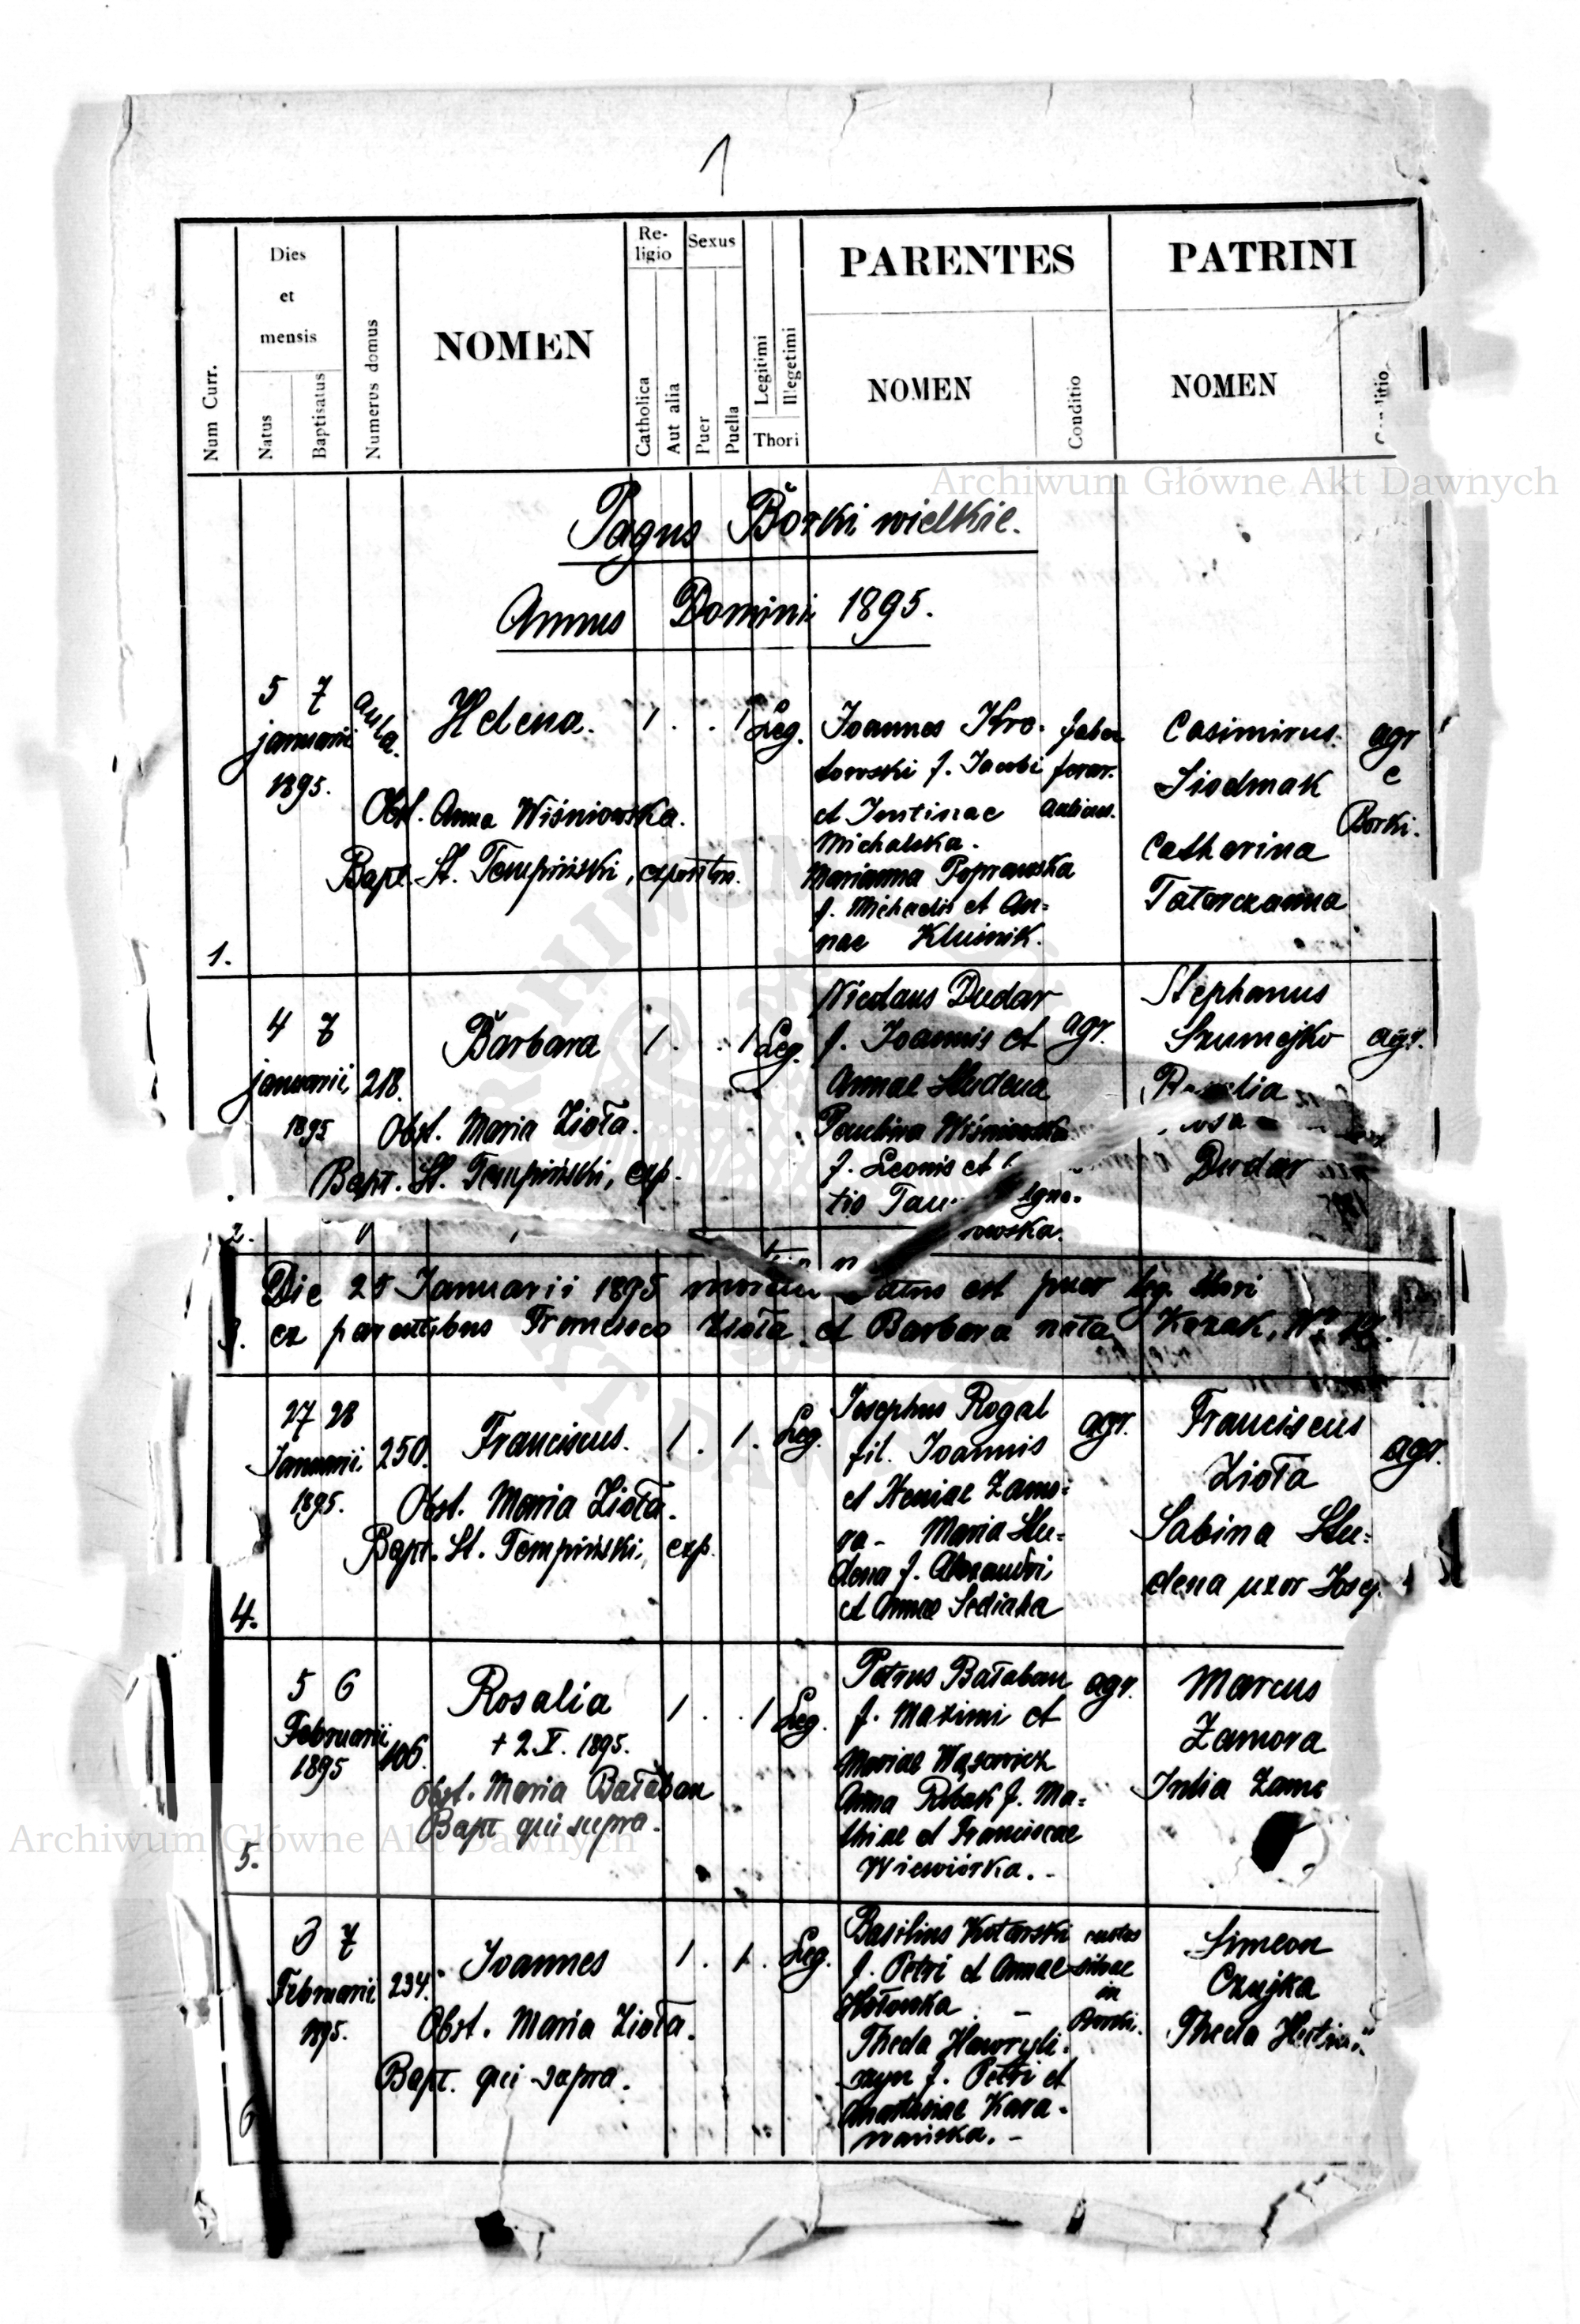 1
Num Curr.
Dies
et
mensis
Natus
Baptisatus
Numerus domus
NOMEN
Re-
ligio
Catholica
Aut alia
Sexus
Puer
Puella
Legitimi
Illegetimi
Thori
PARENTES
NOMEN
Conditio
PATRINI
NOMEN
Conditio
Archiwum Główne Akt Dawnych
Pagus Borki wielkie.
Annus Domini 1895.
1.
5 7
januarii
1895.
aula.
Helena.
Obst. Anna Wiśniowska.
Bapt. St. Tempiński, expositus.
1 . . 1 Leg.
Joannes Kro-
towski f. Jacobi
et Justinae
Michalska.
Marianna Poprawska
f. Michaelis et An=
nae Kluśnik.
faber
ferar.
Casimirus
Siodmak
Catharina
Tatarczanna
agr
e
Borki.
2.
4 7
januarii,
1895
218.
Barbara
Obst. Maria Zioła.
Bapt. St. Tempiński, exp.
1 . . 1 Leg.
Nicolaus Dudar
f. Joannis et
Annae Studena
Paulina Wiśniowska
f. Leonis et
agr.
Stephanus
Szumejko
Dudar
agr.
3.
Die 25 Januarii 1895 natus est puer leg. thori
ex parentibus Francisco Zioła et Barbara nata Kozak,
4.
27 28
Januarii
1895.
250.
Franciscus.
Obst. Maria Zioła.
Bapt. St. Tempiński, exp.
1 . 1 . Leg.
Josephus Rogal
fil. Joannis
et Xeniae Zamo=
ra - Maria Stu=
dena f. Alexandri
et Annae Sediaha
agr.
Franciscus
Zioła
Sabina Stu=
dena uxor Josep.
agr.
5.
5 6
Februarii
1895
106.
Rosalia
+ 2.V. 1895.
Obst. Maria Bałaban
Bapt qui supra.
1 . . 1 Leg.
Petrus Bałaban
f. Maximi et
Mariae Wąsowicz
Anna Rybak f. Ma=
thiae et Franciscae
Wiewiórka. -
agr.
Marcus
Zamora
Julia
Archiwum Główne Akt Dawnych
6
3 7
Februarii
1895.
234.
Joannes
Obst. Maria Zioła.
Bapt. qui supra.
1 . 1 . Leg.
Basilius Kotowski
f. Petri et Annae
Hołowka -
Theda Hawryli-
szyn f. Petri et
Anastasiae Kara-
wańska. -
custos
silvae
in
Borki.
Simeon
Czujka
Theda